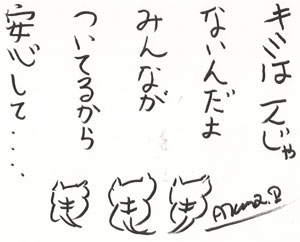 キミは一人じゃ
ないんだよ
みんなが
ついてるから
安心して....
き
き
き